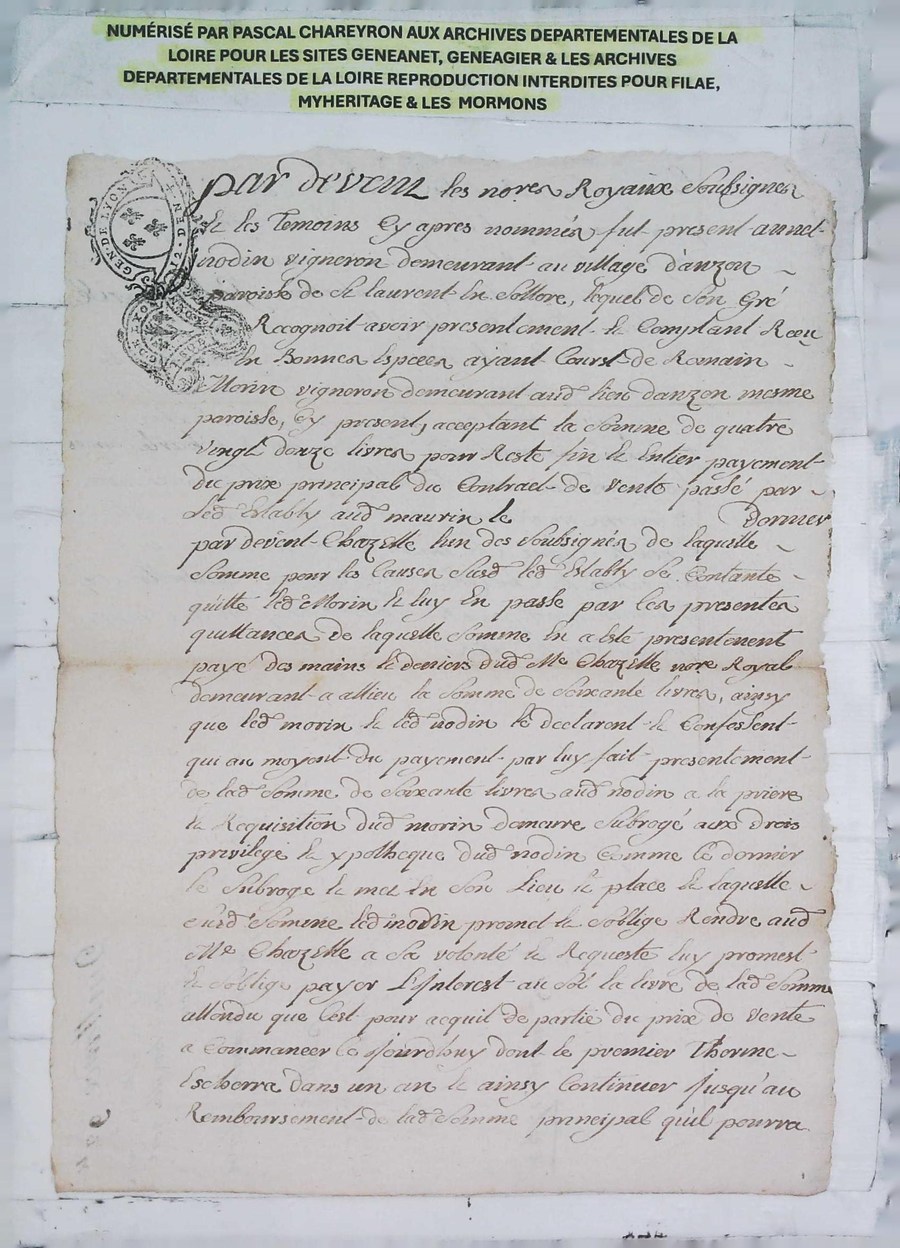 NUMÉRISÉ PAR PASCAL CHAREYRON AUX ARCHIVES DEPARTEMENTALES DE LA
LOIRE POUR LES SITES GENEANET, GENEAGIER & LES ARCHIVES
DEPARTEMENTALES DE LA LOIRE REPRODUCTION INTERDITES POUR FILAE,
MYHERITAGE & LES MORMONS
GEN · DE LYON
par devent les nores Royaux soubsignes
& les temoins cy apres nommés fut present annet
nodin vigneron demeurant au village d'anzon
paroisse de st laurent En sollore, lequel de son Gré
Recognoit avoir presentement & Comptant Receu
En Bonnes Especes ayant Courst de Romain
Morin vigneron demeurant aud lieu danzon mesme
paroisse, cy present, acceptant la somme de quatre
vingt douze livres pour Reste fin & Entier payement
du prix principal du Contract de vente passé par
led Estably aud maurin le dernier
par devent Chazelle lun des soubsignés de laquelle
somme pour les Causes susd led Estably se Contante
quitte led Morin & luy En passe par les presentes
quittances de laquelle somme En a esté presentement
payé des mains & deniers dud Me Chazelle nore Royal
demeurant a allieu la somme de soixante livres, ainsy
que led morin & led nodin le declarent & Confessent
qui au moyent du payement par luy fait presentement
de lad somme de soixante livres aud nodin a la priere
& Requisition dud morin demeure subrogé aux drois
privilege & ypotheque dud nodin Comme ce dernier
le subroge & met En son Lieu & place & laquelle
susd somme led nodin promet & soblige Rendre aud
Me Chazelle a sa volonté & Requeste luy promest
& soblige payer L'Interest au sol la livre de lad somme
attendu que Cest pour acquit de partie du prix de vente
a Commancer Ce jourdhuy dont le premier Therme
Escherra dans un an & ainsy Continuer jusqu'au
Remboursement de lad somme principal quil pourra